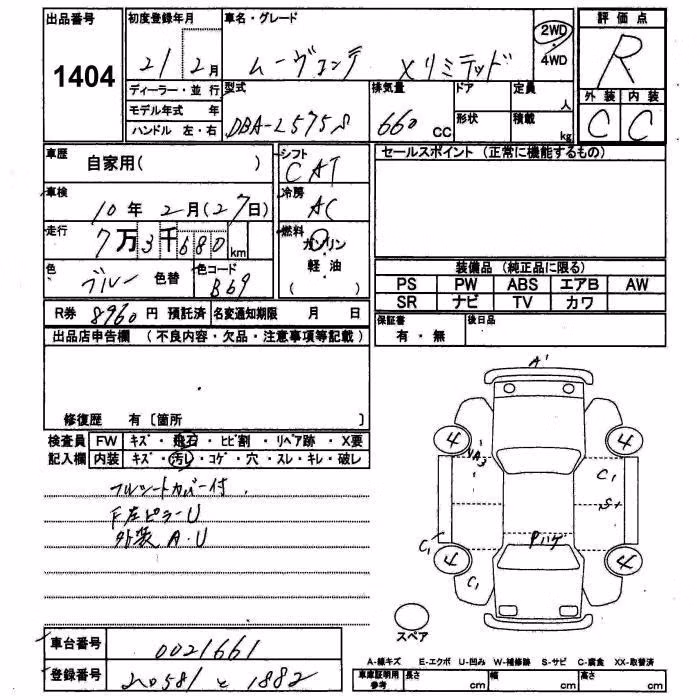 出品番号
1404
初度登録年月
21 2月
車名・グレード
ムーヴコンテ Xリミテッド
2WD
4WD
評価点
R
外装 内装
C C
ディーラー・並行
モデル年式 年
ハンドル 左・右
型式
DBA-L575S
排気量
660 CC
ドア
形状
定員
人
積載
kg
車歴
自家用( )
シフト
CAT
セールスポイント (正常に機能するもの)
車検
10年 2月(27日)
冷房
AC
走行
7万3千680km
燃料
ガソリン
軽油
( )
色
ブルー 色替
色コード
B69
装備品 (純正品に限る)
PS PW ABS エアB AW
SR ナビ TV カワ
R券 8960円 預託済
名変通知期限 月 日
保証書
有・無
後日品
出品店申告欄 (不良内容・欠品・注意事項等記載)
修復歴 有 〔箇所 〕
検査員 FW キズ・飛石・ヒビ割・リペア跡・X要
記入欄 内装 キズ・汚レ・コゲ・穴・スレ・キレ・破レ
フルシートカバー付
F左ピラーU
外装 A・U
A'
4 4
A3
C1
S+
C1
Pハゲ
4 4
C1
スペア
車台番号
0021661
登録番号
A-線キズ E-エクボ U-凹み W-補修跡 S-サビ C-腐食 XX-取替済
車庫証明用
参考
長さ cm
幅 cm
高さ cm